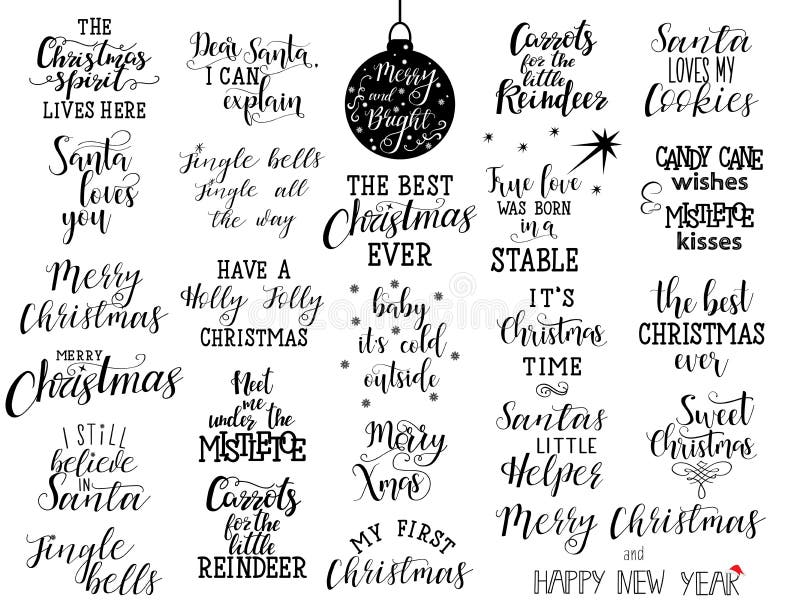 THE
Christmas
spirit
LIVES HERE
Santa
loves
you
Merry
Christmas
MERRY
Christmas
I STILL
believe
IN
Santa
Jingle
bells
Dear Santa,
I CAN
explain
Jingle bells
Jingle all
the way
HAVE A
Holly Jolly
CHRISTMAS
Meet
me
under the
MISTLETOE
Carrots
for the
little
REINDEER
Merry
and
Bright
THE BEST
Christmas
EVER
baby
it's cold
outside
Merry
Xmas
MY FIRST
Christmas
Carrots
for the
little
Reindeer
True love
WAS BORN
in a
STABLE
IT'S
Christmas
TIME
Santas
LITTLE
Helper
Santa
LOVES MY
Cookies
CANDY CANE
wishes
&
MISTLETOE
kisses
the best
CHRISTMAS
ever
Sweet
Christmas
Merry Christmas
and
HAPPY NEW YEAR
dreamstime